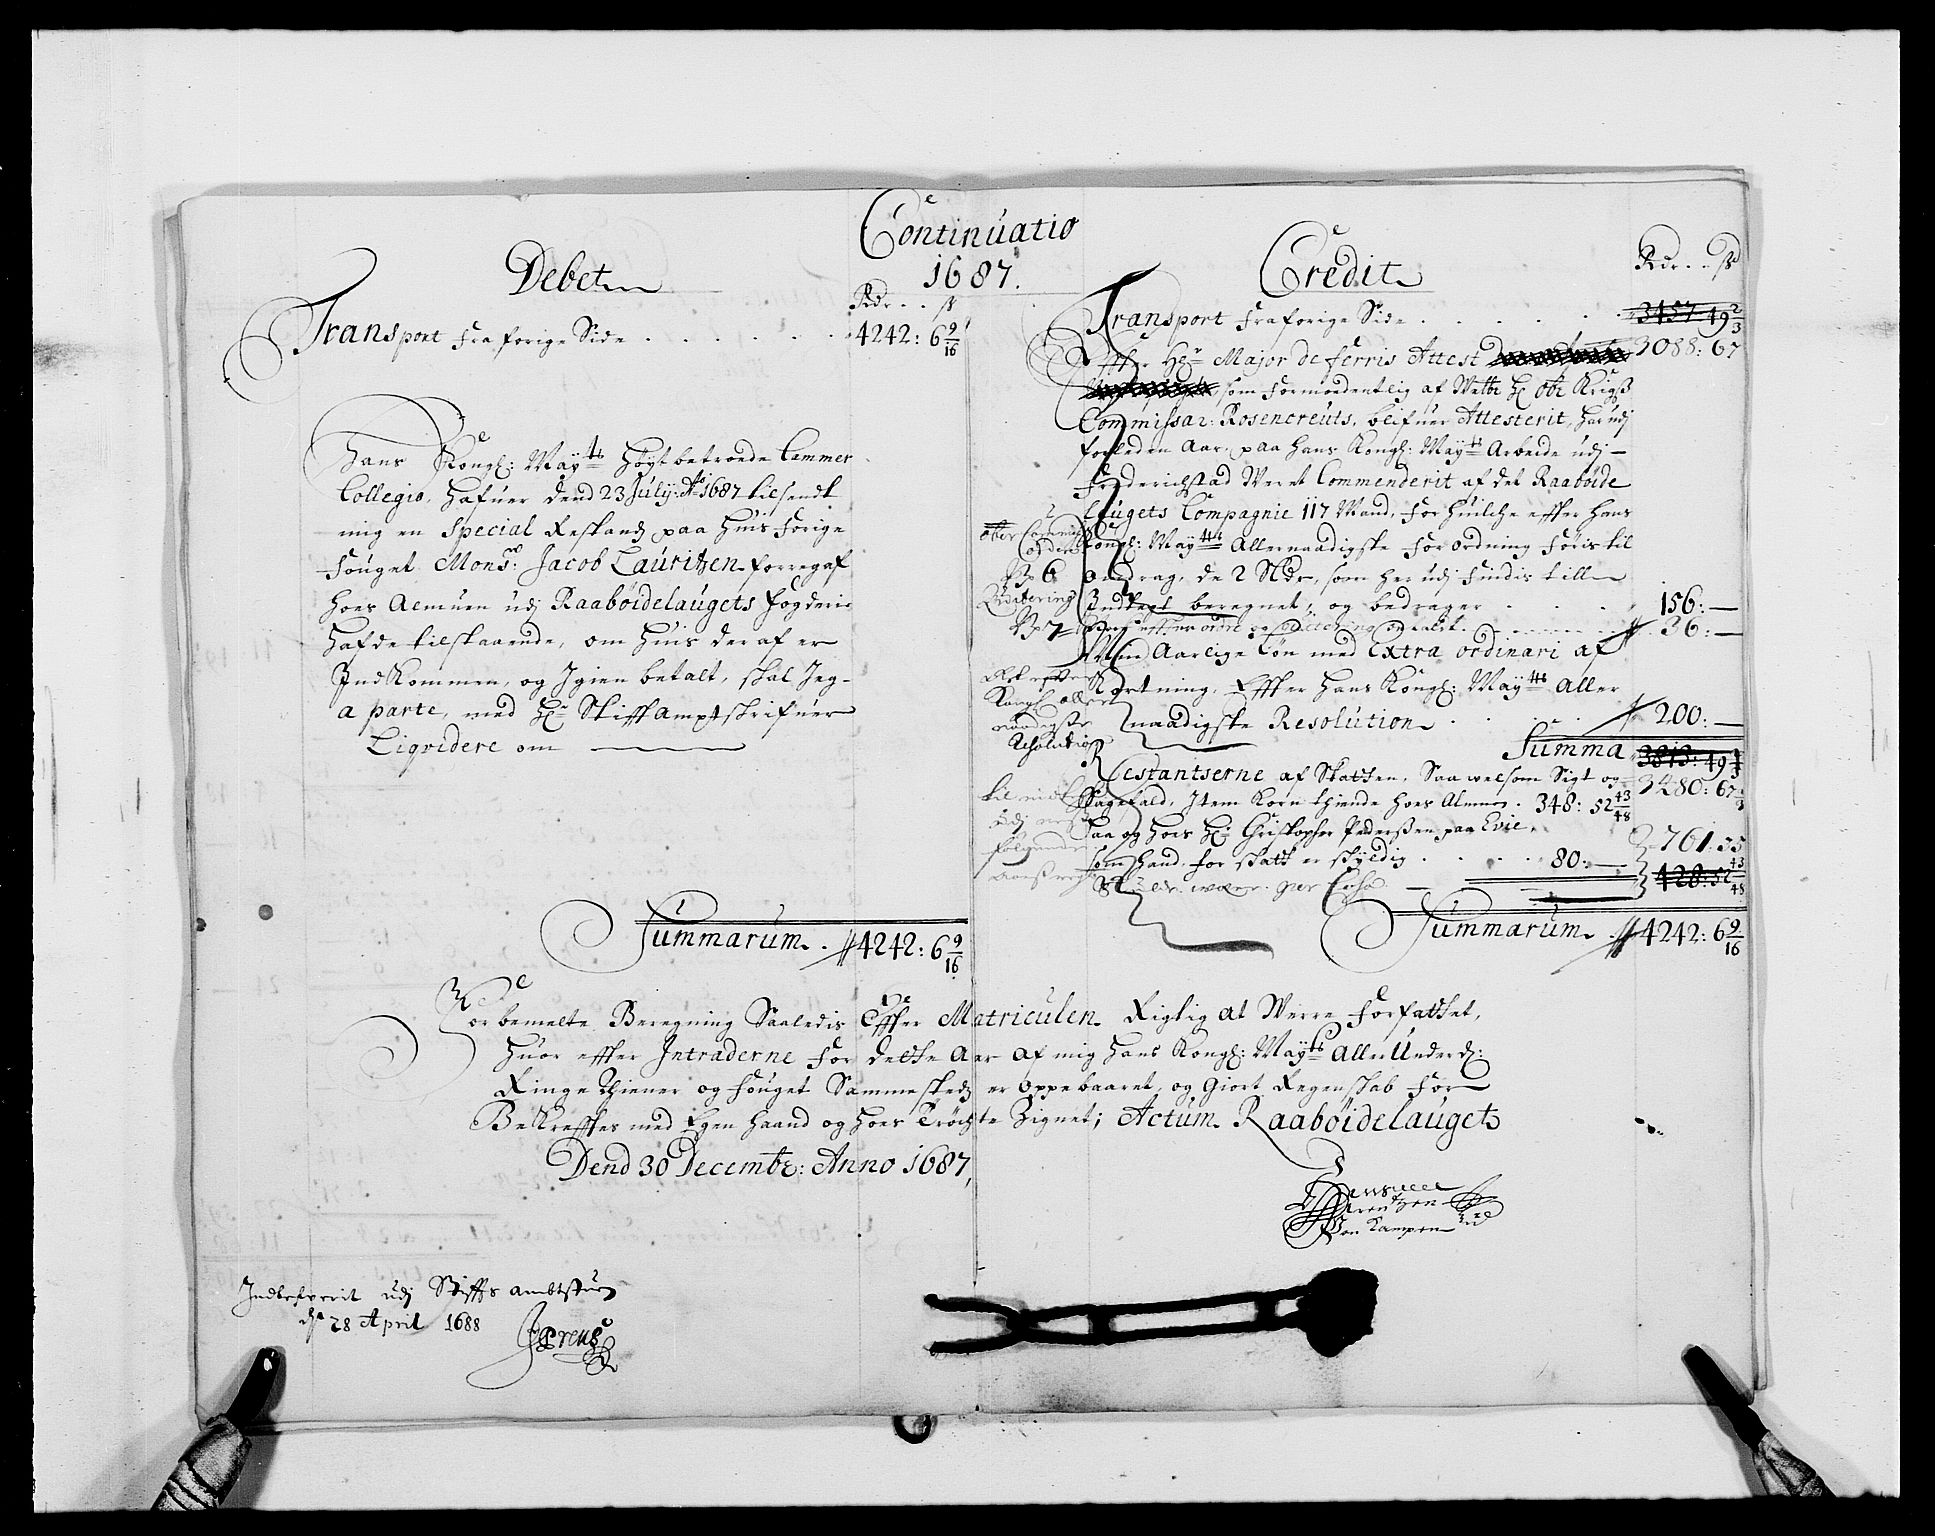 Continuatio
1687.
Debet
Rdr. . ß
Transport fra forige Side . . . . . . 4242: 6 9/16
Hans Kongl: Mayts Høyt betroede Cammer
Collegio, hafuer dend 23 July: Ao 1687 tilsendt
mig en Special Restands paa huis forige
fouget Monsr: Jacob Lauritzen forregaf
hoes Almuen udj Raabøidelaugets fogderie
hafde tilstaaende, om huis der af er
Ind Kommen, og Igien betalt, skal Jeg
a parte, med Hr Stifftamptskrifuer
Liqvidere om
Summarum . 4242: 6 9/16
Credit
Rdr. . ß
Transport fra forige Side . . . . . 3457: 49 2/3
Effter Hr Major de ferris Attest 3088: 67
som formodentlig af Velb: H Ob: Krigs
Commissar: Rosencreuts, blifuer Attesterit, har udj
forleden Aar, paa Hans Kongl: Mayts Arbeide udj
Frederichstad Veret Commenderit af det Raabøide
laugets Compagnie 117 Mand, for huilche effter Hans
Kongl: Mayts Allernaadigste forordning føris til
afdrag, de 2 Rdr, som her udj findis till
Indtegt beregnet, og bedrager . . . . 156: —
ordre og qvitering betalt . . . . 36: —
Min Aarlige Løn med Extra ordinari af
Kortning, Effter Hans Kongl: Mayts Aller
naadigste Resolution . . . . 200: —
Vp 6
qvitering
Vp 7
Kongl aller
naadigste
Resolution
Summa 3813: 49 2/3
Restantserne af Skatten, Saa velsom Sigt og 3480: 67 1/3
Sagefald, Item Korn thiende hoes Almuen . 348: 52 43/48
saa og hoes Hr Christopher Pedersen paa Evie,
som hand for skatt er skyldig . . . . . 80: —
761: 35
428: 52 43/48
følgende
Summarum 4242: 6 9/16
Forbemelte Beregning Saaledis Effter Matriculen Rigtig at Verre forfattet,
huor effter Intraderne for dette Aar af mig Hans Kongl: Mayts Aller Underd:
Ringe thiener og fouget Sammesteds er oppebaaret, og Giort Regenskab for
Bekreffter med Egen haand og hoes trøchte Zignet; Actum Raabøidelauget
Dend 30 Decembr: Anno 1687,
Von Kampen
Indlefverit udj Stiffts ambtstuen
d. 28 April 1688